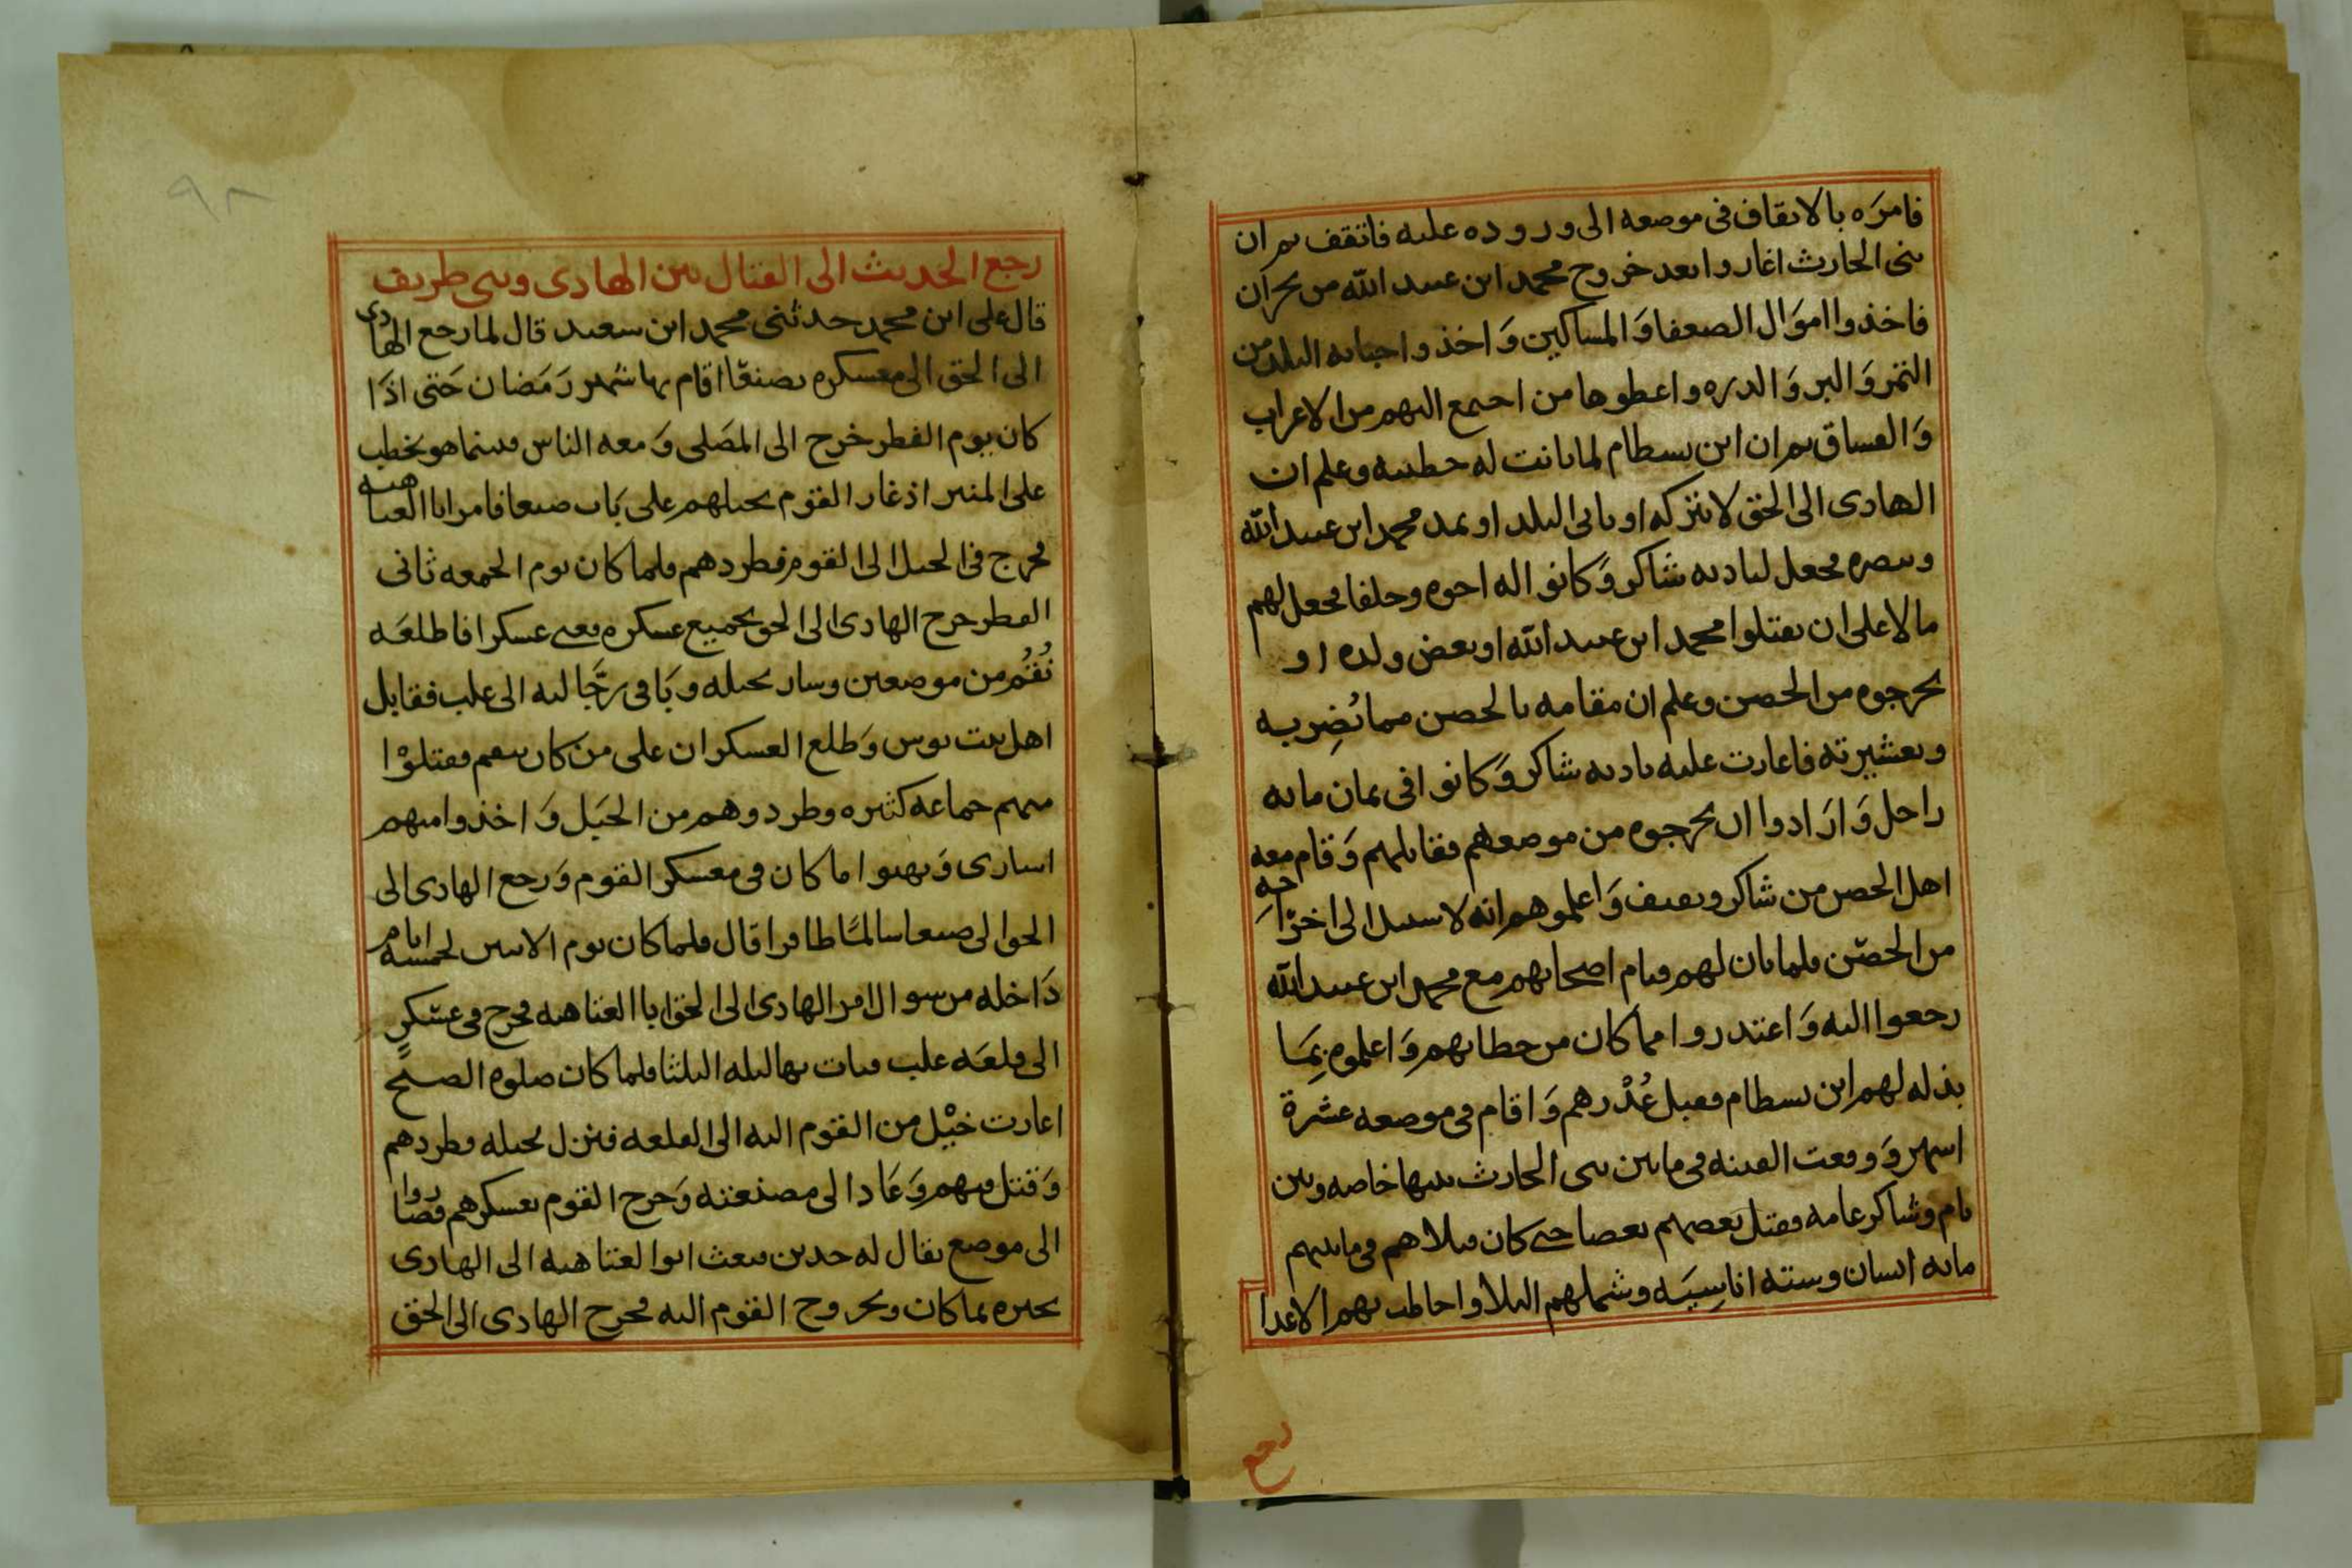 فامره بالايقاف فى موضعه الى وروده عليه فاتقف ثم ان
بنى الحارث اغاروا بعد خروج محمد ابن عبيد الله من نجران
فاخذوا اموال الضعفا والمساكين واخذوا جبايه البلد من
التمر والبر والدره واعطوها من اجتمع اليهم من الاعراب
والفساق ثم ان ابن بسطام لما بانت له خطيته وعلم ان
الهادى الى الحق لا يتركه او ياتى البلد او يمد محمد ابن عبيد الله
وينصره فجعل لباديه شاكر وكانوا له اخوه وحلفا فجعل لهم
مالا على ان يقتلوا محمد ابن عبيد الله او بعض ولده او
يخرجوه من الحصن وعلم ان مقامه بالحصن مما يضر به
وبعشيرته فاغارت عليه باديه شاكر وكانوا فى ثمان مايه
راجل وارادوا ان يخرجوه من موضعهم فقاتلهم وقام معه
اهل الحصن من شاكر وثقيف واعلموهم انه لا سبيل الى اخراجه
من الحصن فلما بان لهم قيام اصحابهم مع محمد ابن عبيد الله
رجعوا اليه واعتذروا مما كان من خطايهم واعلموه بما
بذله لهم ابن بسطام فقبل عذرهم واقام فى موضعه عشرة
اشهر ووقعت الفتنه فى ما بين بنى الحارث بينها خاصه وبين
يام وشاكر عامه فقتل بعضهم بعضا حتى كان قتلاهم فى ما بينهم
مايه انسان وسته اناسيه وشملهم البلا واحاطت بهم الاعدا
رجع
٩٨
رجع الحديث الى القتال بين الهادى وبنى طريف
قال على ابن محمد حدثنى محمد ابن سعيد قال لما رجع الهادى
الى الحق الى معسكره بصنعا اقام بها شهر رمضان حتى اذا
كان يوم الفطر خرج الى المصلى ومعه الناس فبينما هو يخطب
على المنبر اذ غار القوم بخيلهم على باب صنعا فامر ابا العتاهيه
فخرج فى الخيل الى القوم فطردهم فلما كان يوم الجمعه ثانى
الفطر خرج الهادى الى الحق بجميع عسكره يعبى عسكرا فاطلعه
نقم من موضعين وسار بخيله وباقى رجالته الى علب فقابل
اهل بيت بوس وطلع العسكران على من كان بنقم فقتلوا
منهم جماعه كثيره وطردوهم من الجبل واخذوا منهم
اسارى ونهبوا ما كان فى معسكر القوم ورجع الهادى الى
الحق الى صنعا سالما ظافرا قال فلما كان يوم الاثنين لخمسه ايام
داخله من شوال امر الهادى الى الحق ابا العتاهيه فخرج فى عسكر
الى قلعه علب فبات بها ليله الثلثا فلما كان صلوه الصبح
اغارت خيل من القوم اليه الى القلعه فنزل بخيله فطردهم
وقتل منهم وعاد الى مصنعته وخرج القوم بعسكرهم فصاروا
الى موضع يقال له حدين فبعث ابو العتاهيه الى الهادى
يخبره بما كان وبخروج القوم اليه فخرج الهادى الى الحق